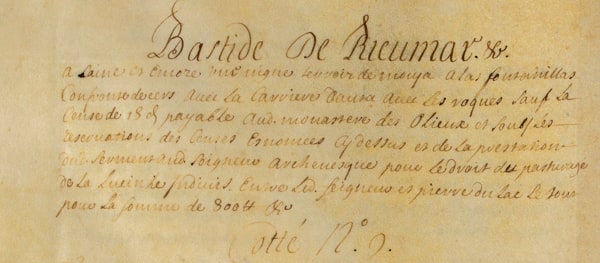 Bastide De Rieumar. &c.
a Laine et Encore une vigne terroir de moya a las fontanillas
Confronte de cers avec la Carriere Dauta avec les roques sauf la
Cense de 18 d payable Aud. monastere des Olieux et soulz les
reservations des Censes Enoncees Aydessus et de la prestation
dud. serment aud. seigneur Archevesque pour le droit de pasturage
de la Indivis. Entre led. seigneur et pierre du lac le tout
pour la somme de 800 tt &c
Cotté N.º 9.